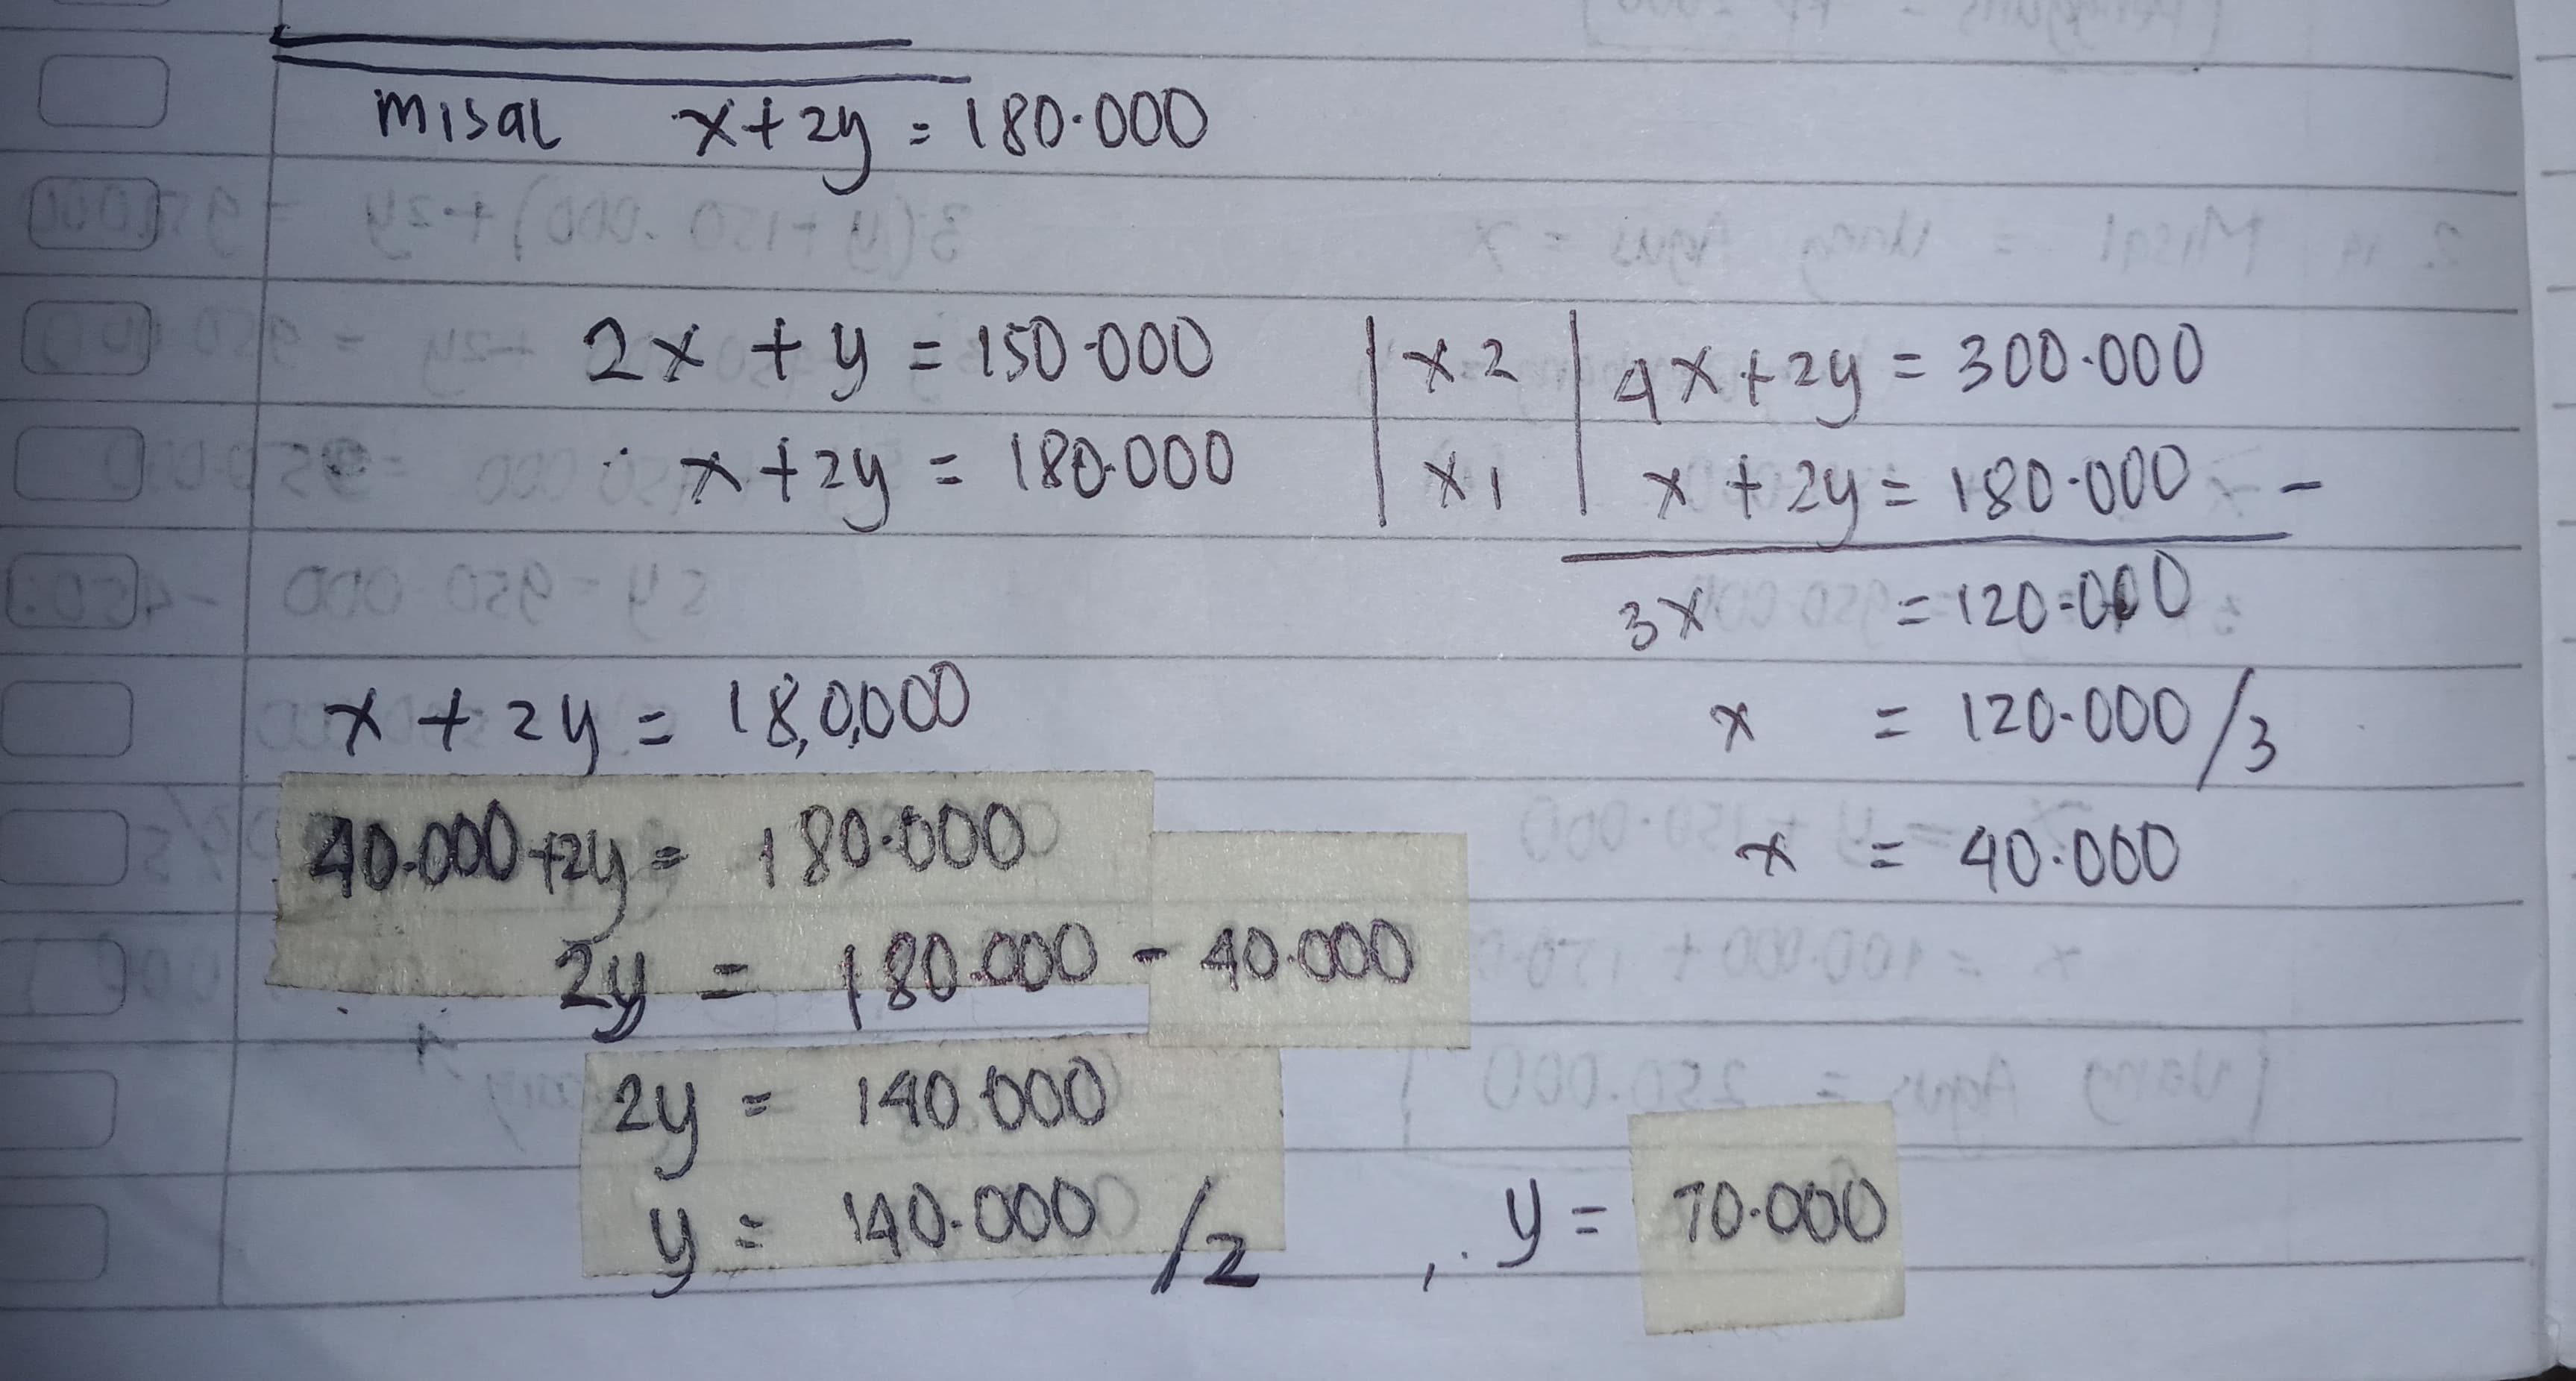 misal x+2y = 180.000
2x + y = 150.000 | x2 | 4x+2y = 300.000
x+2y = 180.000 | x1 | x + 2y = 180.000 -
3x = 120.000
x + 2y = 18,0,000
x = 120.000/3
40.000+2y = 180.000
x = 40.000
2y = 180.000 - 40.000
2y = 140.000
y = 140.000/2 , y = 70.000